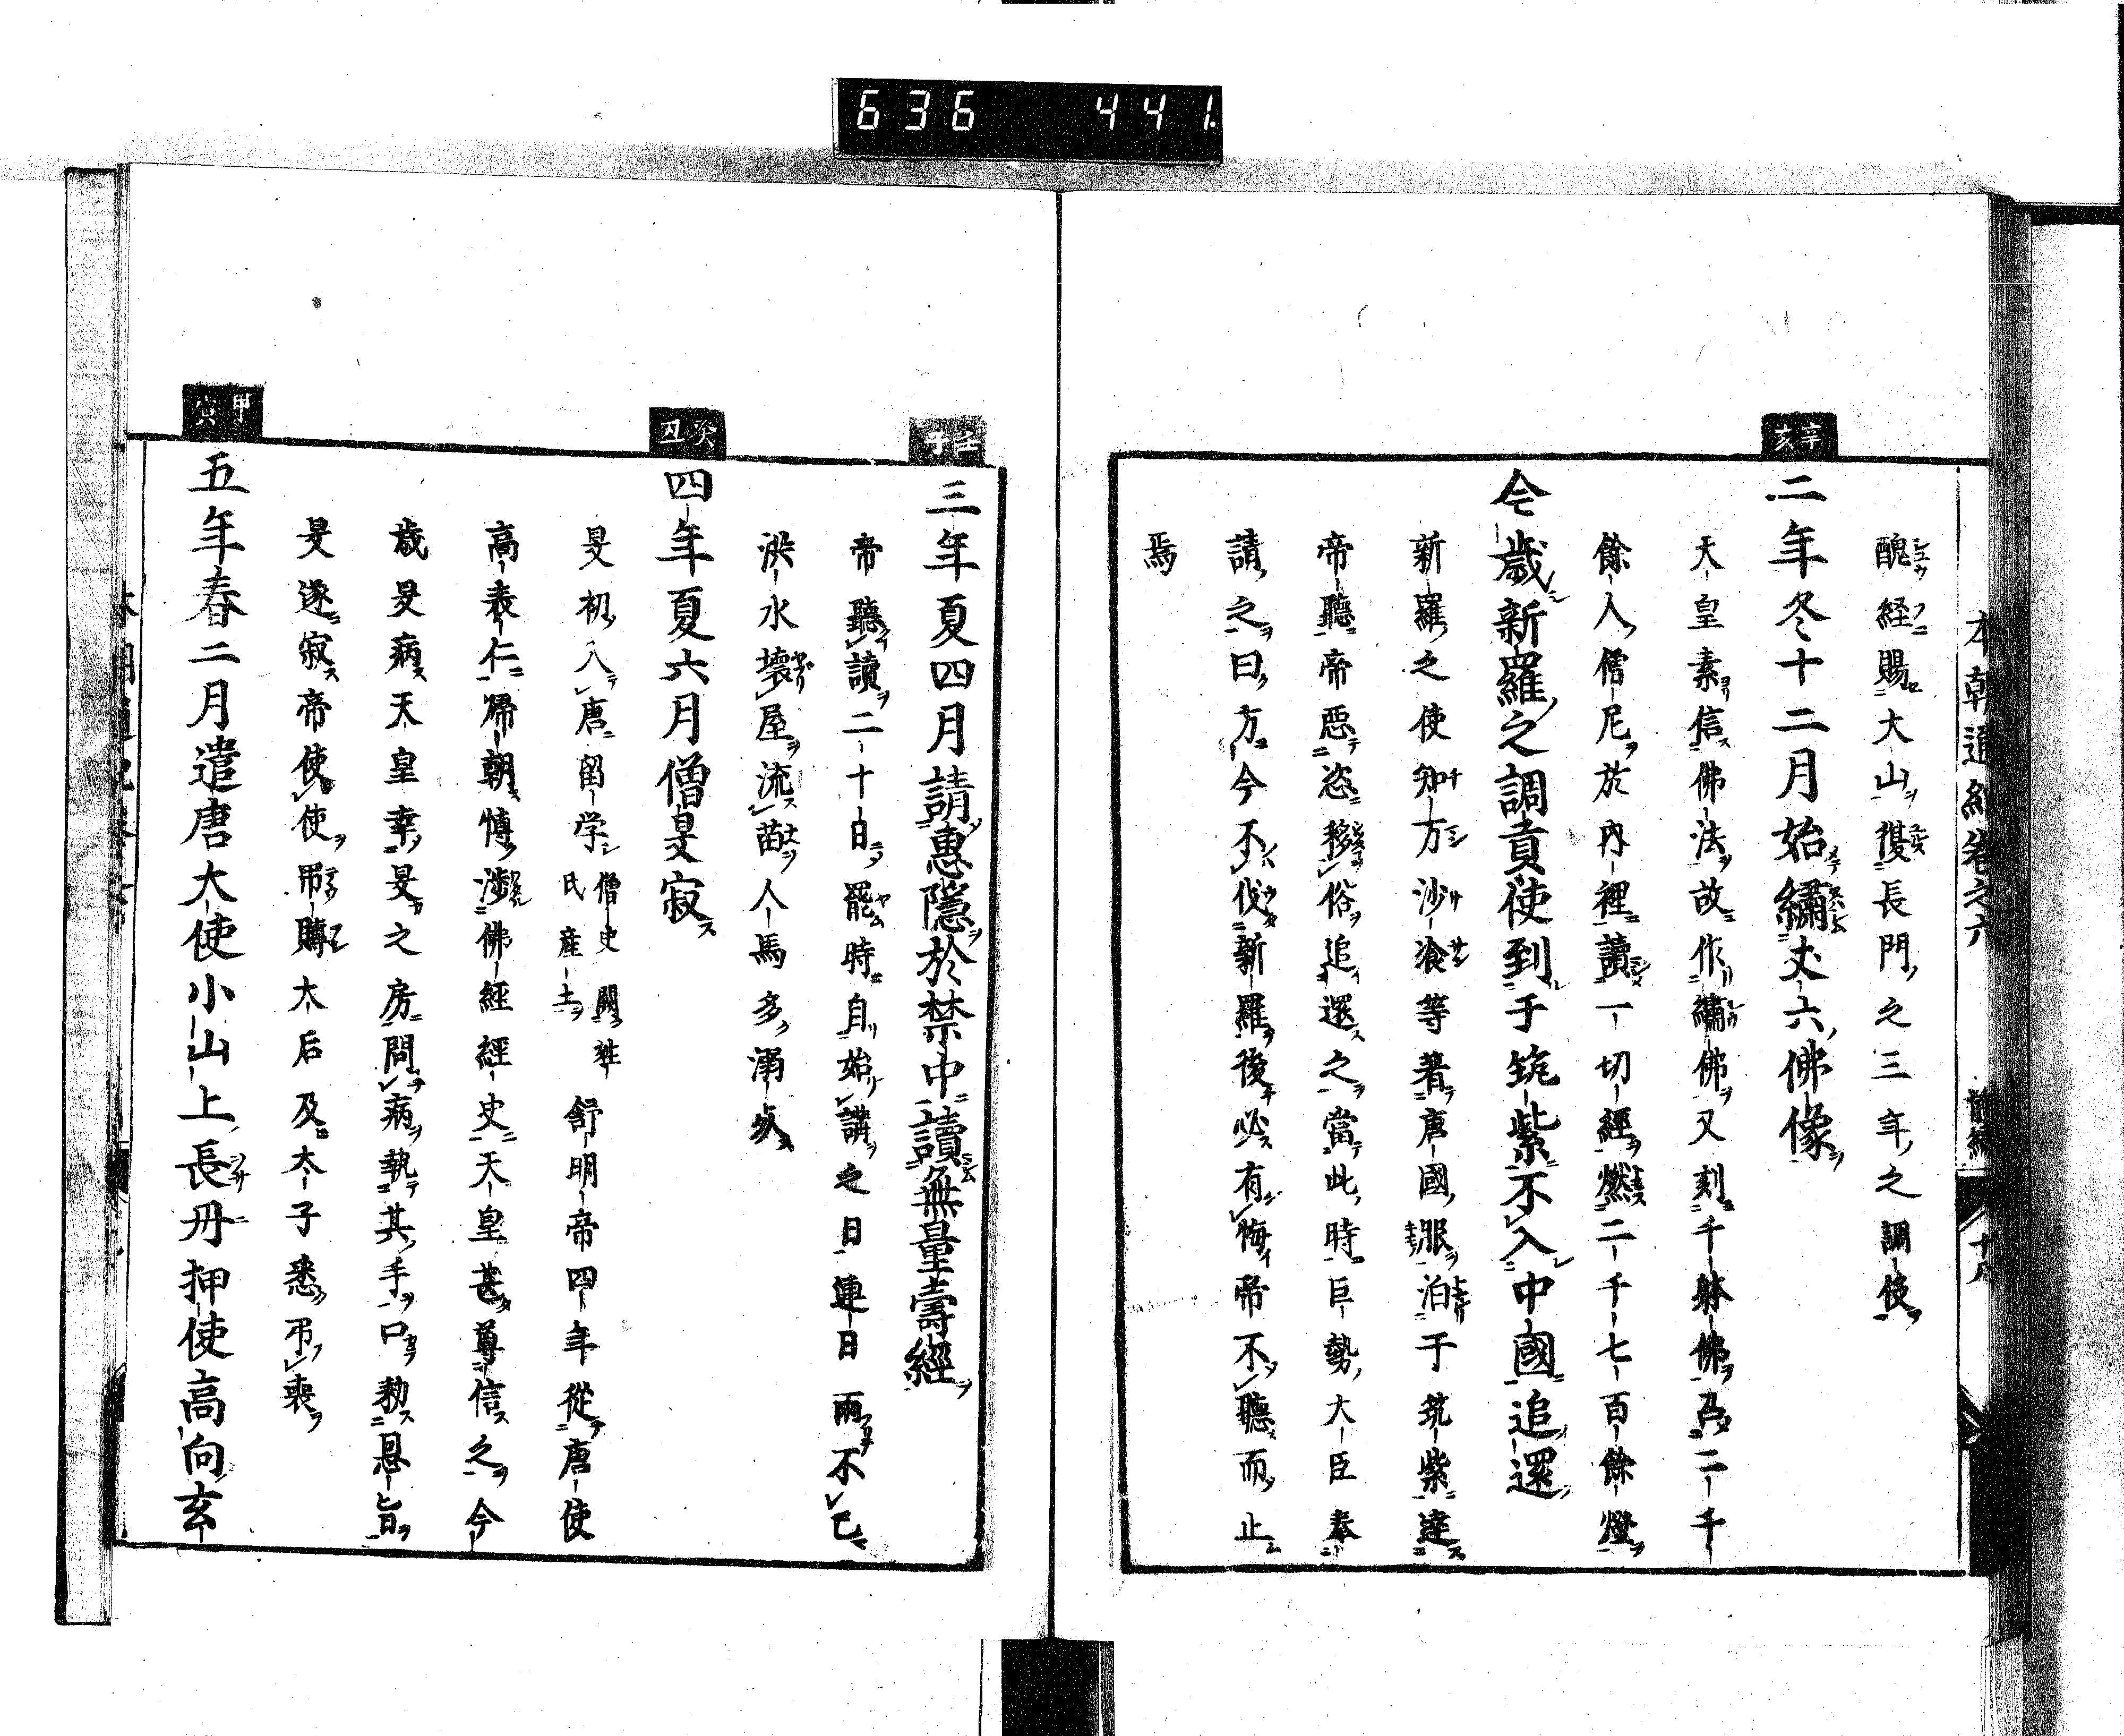 636 441.
本朝通紀卷之六 前編 十八
醜経賜大山復長門之三年之調使
辛亥
二年冬十二月始繡丈六佛像
天皇素信佛法故作繡佛又刻千躰佛爲二千
餘人僧尼於內裡讀一切經燃二千七百餘燈
今歲新羅之調貢使到于筑紫不入中國追還
新羅之使知万沙飡等著唐國服泊于筑紫達
帝聽帝惡恣移俗追還之當此時巨勢大臣奉
請之曰方今不伐新羅後必有悔帝不聽而止
焉
壬子
三年夏四月請惠隱於禁中讀無量壽經
帝聽讀二十日罷時自始講之日連日雨不已
洪水壞屋流苗人馬多溺死
癸丑
四年夏六月僧旻寂
旻初入唐留学僧史闕姓氏産土舒明帝四年從唐使
高表仁歸朝博涉佛經經史天皇甚尊信之今
歲旻病天皇幸旻之房問病執其手口勅恩旨
旻遂寂帝使使弔賻太后及太子悉弔喪
甲寅
五年春二月遣唐大使小山上長丹押使高向玄